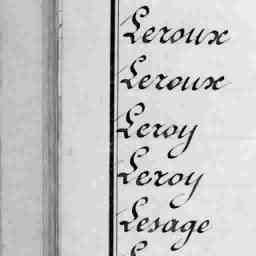 Leroux
Leroux
Leroy
Leroy
Lesage